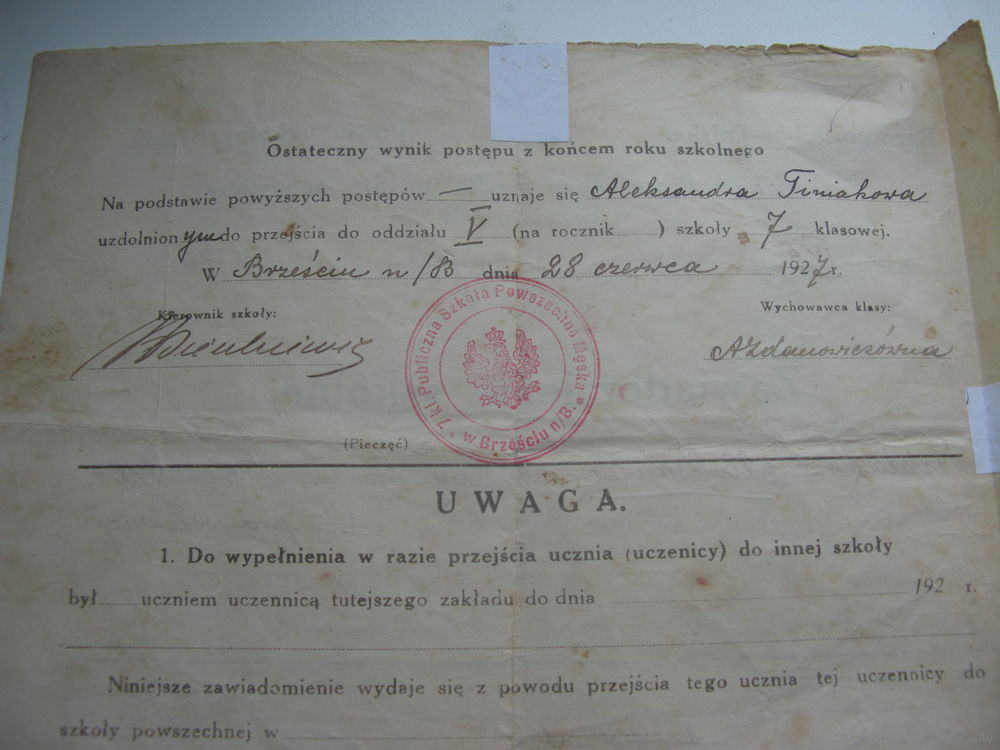 Ostateczny wynik postępu z końcem roku szkolnego
Na podstawie powyższych postępów — uznaje się Aleksandra Tiniakowa
uzdolnionym do przejścia do oddziału V (na rocznik ) szkoły 7 klasowej.
W Brześciu n/B dnia 28 czerwca 1927 r.
Kierownik szkoły:
Wychowawca klasy:
AŻdanowiczówna
7 kl. Publiczna Szkoła Powszechna Męska * w Brześciu n/B. *
(Pieczęć)
UWAGA.
1. Do wypełnienia w razie przejścia ucznia (uczenicy) do innej szkoły
był uczniem uczennicą tutejszego zakładu do dnia 192 r.
Niniejsze zawiadomienie wydaje się z powodu przejścia tego ucznia tej uczennicy do
szkoły powszechnej w